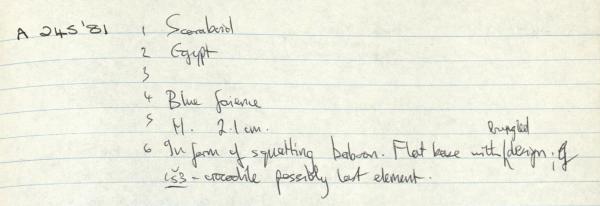 A 245'81 1 Scaraboid
2 Egypt
3
4 Blue faience
5 H. 2.1 cm.
6 In form of squatting baboon. Flat base with bungled design,
- crocodile possibly last element.